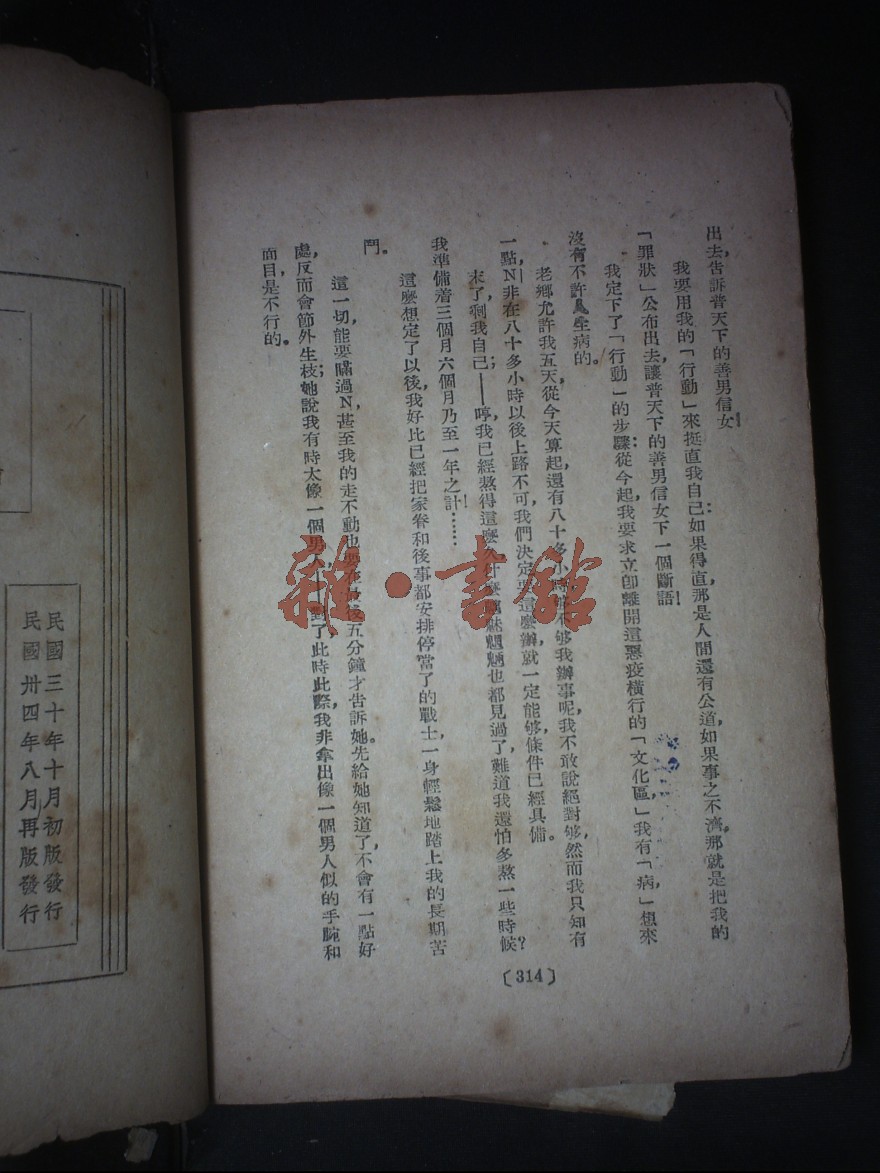 出去，告訴普天下的善男信女
我要用我的「行動」來挺直我自己：如果得直，那是人間還有公道，如果事之不濟，那就是把我的
「罪狀」公布出去，讓普天下的善男信女下一個斷語！
我定下了「行動」的步驟：從今起，我要求立卽離開這惡疫橫行的「文化區，」我有「病，」想來
沒有不許人生病的。
老鄉允許我五天，從今天算起，還有八十多小時，不够我辦事呢，我不敢說絕對够，然而我只知有
一點，N非在八十多小時以後上路不可，我們決定要這麼辦，就一定能够，條件已經具備。
末了，剩我自己；——哼，我已經熬得這麼久，什麼魑魅魍魎也都見過了，難道我還怕多熬一些時候？
我準備着三個月六個月乃至一年之計！……
這麽想定了以後，我好比已經把家眷和後事都安排停當了的戰士，一身輕鬆地踏上我的長期苦
鬥。
這一切，能要瞞過N，甚至我的走不動也要在最後五分鐘才告訴她。先給她知道了，不會有一點好
處，反而會節外生枝；她說我有時太像一個男人，——對了，此時此際，我非拿出像一個男人似的手腕和
面目是不行的。
〔314〕
民國三十年十月初版發行
民國卅四年八月再版發行
雜·書館